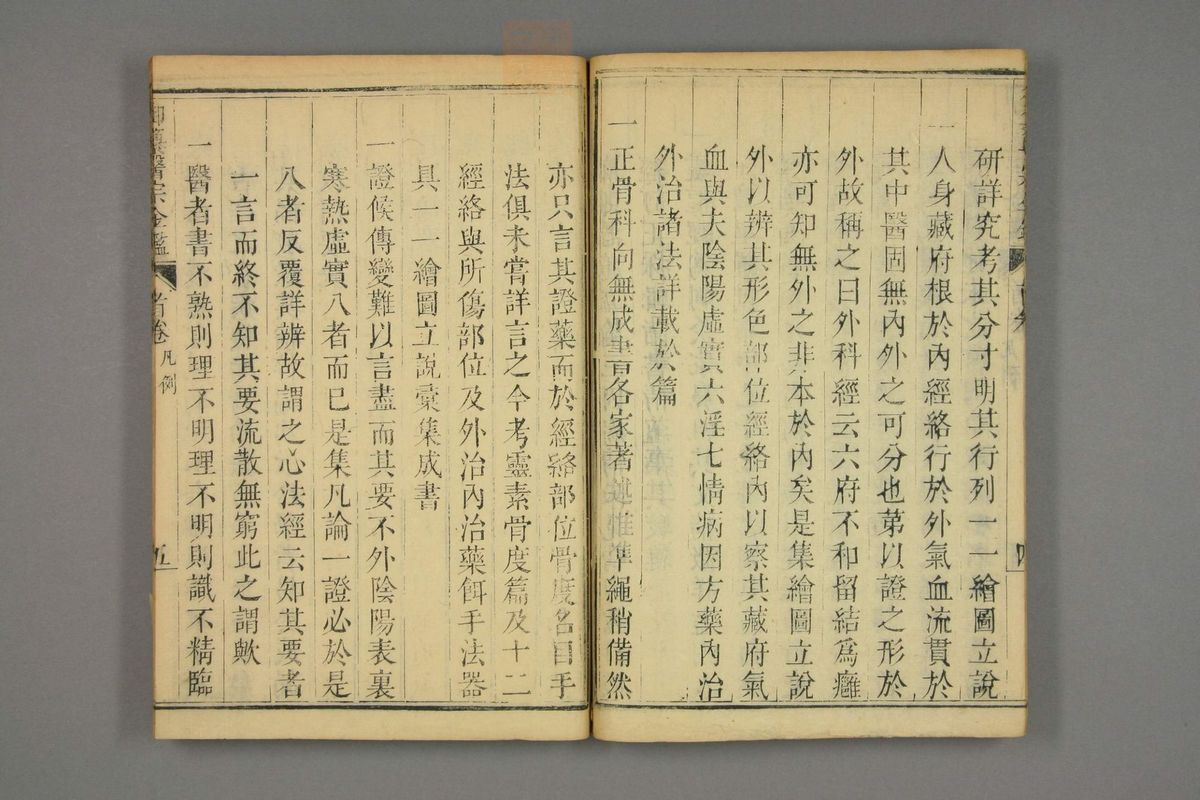 研詳究考其分寸明其行列一一繪圖立說
一人身藏府根於內經絡行於外氣血流貫於
其中醫固無內外之可分也第以證之形於
外故稱之曰外科經云六府不和留結為癰
亦可知無外之非本於內矣是集繪圖立說
外以辨其形色部位經絡內以察其藏府氣
血與夫陰陽虛實六淫七情病因方藥內治
外治諸法詳載於篇
一正骨科向無成書各家著述惟準繩稍備然
亦只言其證藥而於經絡部位骨度名目手
法俱未嘗詳言之今考靈素骨度篇及十二
經絡與所傷部位及外治內治藥餌手法器
具一一繪圖立說彙集成書
一證候傳變難以言盡而其要不外陰陽表裏
寒熱虛實八者而已是集凡論一證必於是
八者反覆詳辨故謂之心法經云知其要者
一言而終不知其要流散無窮此之謂歟
一醫者書不熟則理不明理不明則識不精臨
御纂醫宗金鑑 首卷 凡例 五